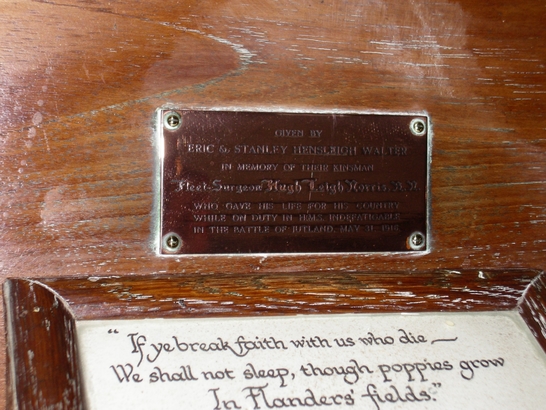 GIVEN BY
ERIC & STANLEY HENSLEIGH WALTER
IN MEMORY OF THEIR KINSMAN
Fleet-Surgeon Hugh Leigh Norris R.N.
WHO GAVE HIS LIFE FOR HIS COUNTRY
WHILE ON DUTY IN H.M.S. INDEFATIGABLE
IN THE BATTLE OF JUTLAND, MAY 31, 1916
"If ye break faith with us who die —
We shall not sleep, though poppies grow
In Flanders' fields."